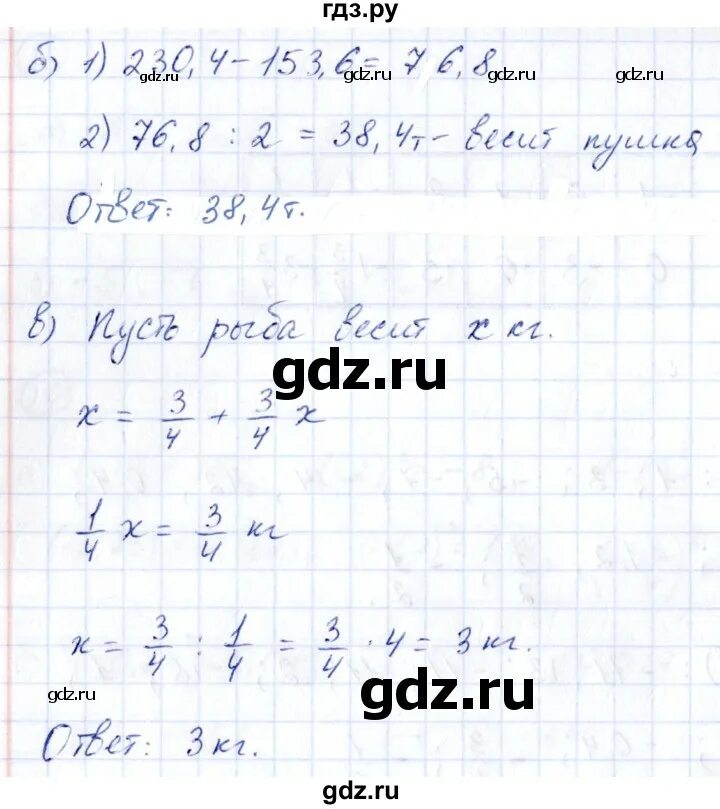 гдз.ру
б) 1) 230,4 - 153,6 = 76,8
gdz.ru gdz.ru gdz.ru gdz.ru
2) 76,8 : 2 = 38,4т - весит пушка
Ответ: 38,4т.
в) Пусть рыба весит x кг.
gdz.ru
x = 3/4 + 3/4 x
1/4 x = 3/4 кг
x = 3/4 : 1/4 = 3/4 · 4 = 3 кг.
gdz.ru gdz.ru
Ответ: 3 кг.
gdz.ru